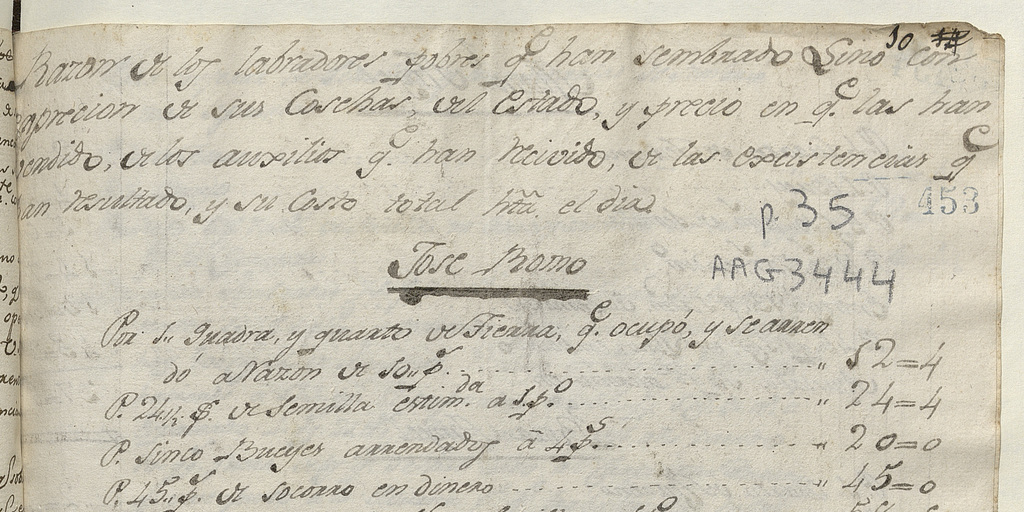 10
Razon de los labradores pobres q.e han sembrado Lino con
exprecion de sus Cosehas, del Estado, y precio en q.e las han
vendido, de los auxilios q.e han recivido, de las existencias q.e
han resultado, y su Costo total htã. el dia
453
p. 35
AAG3444
Jose Romo
Por 1,, quadra, y quarto de Tierra, q.e ocupó, y se arren
dó a razon de 10,, p.s ,, 12=4
P. 24,,½ $. de semilla estim.da a 1,,p.o ,, 24=4
P. Sinco Bueyes arrendados â 4p.s ,, 20=0
P. 45,, p.s de socorro en dinero ,, 45=0